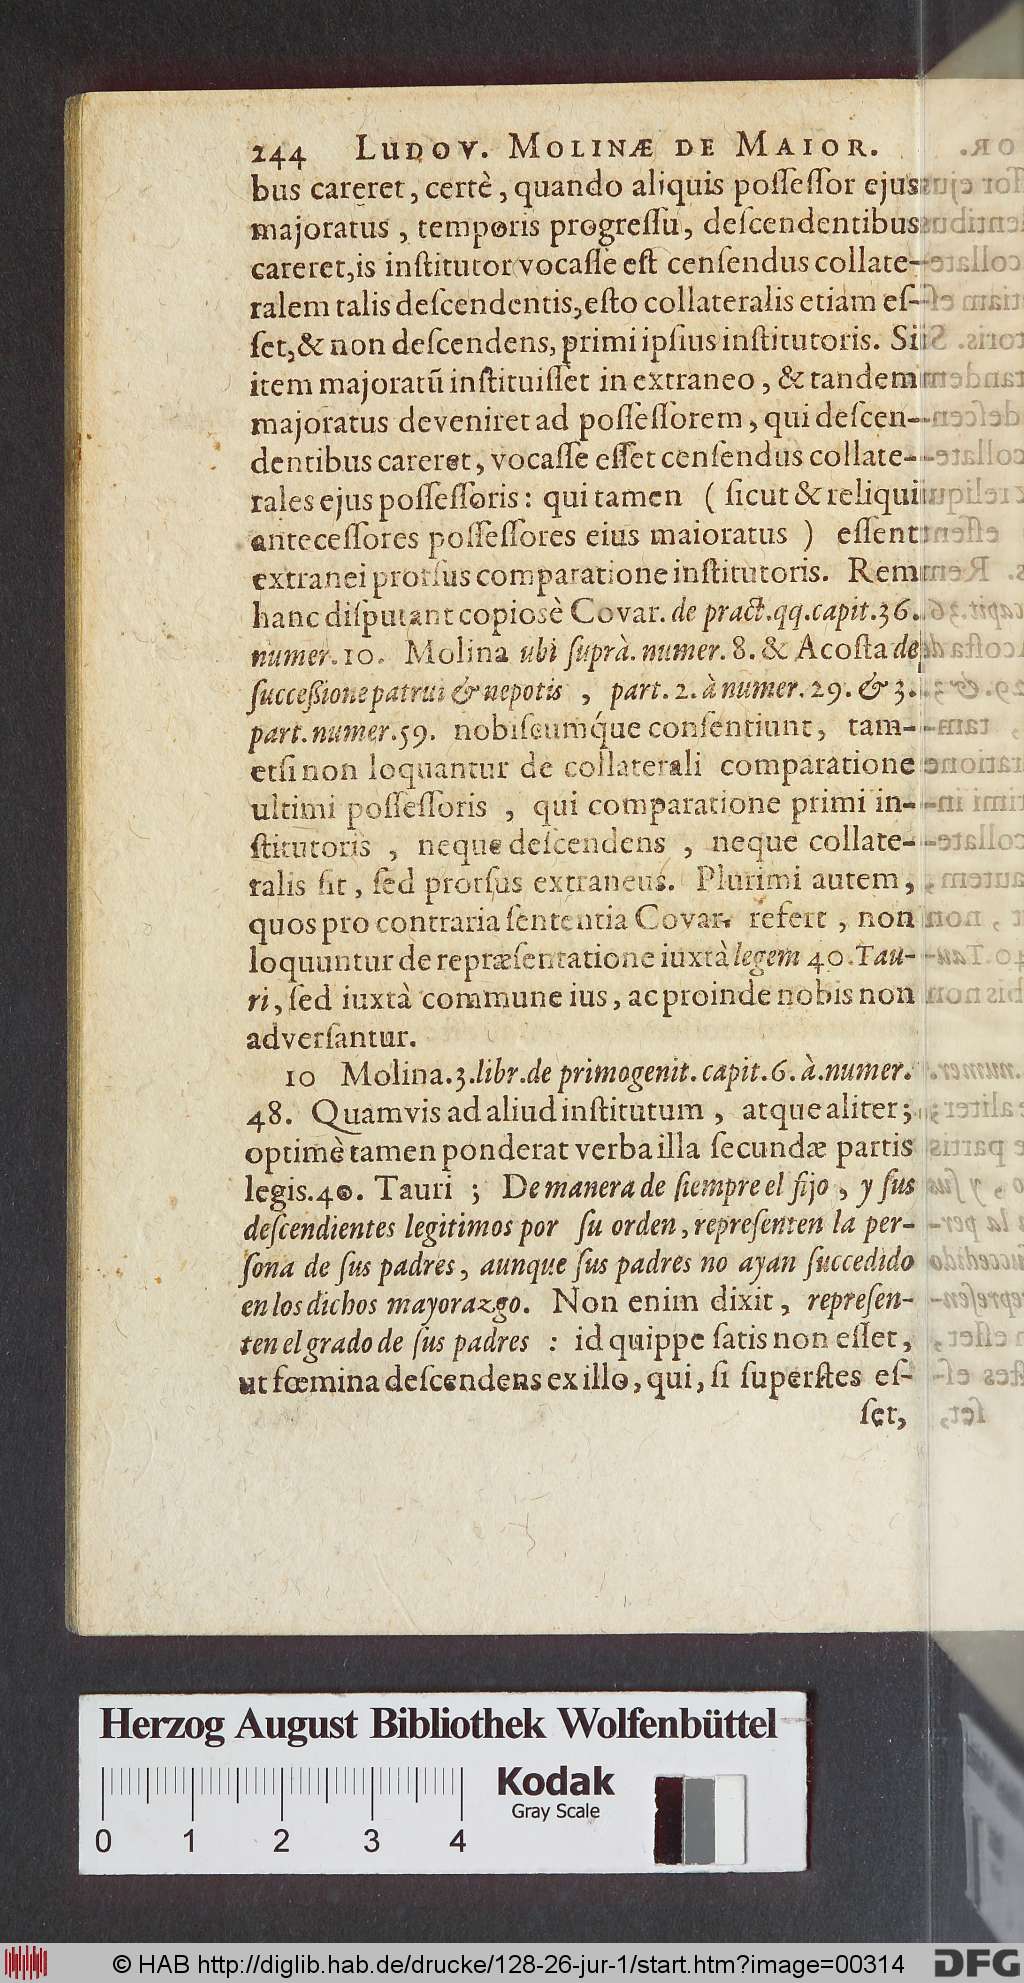 244 LUDOV. MOLINÆ DE MAIOR.
bus careret, certè, quando aliquis poſſeſſor ejus
majoratus, temporis progreſſu, deſcendentibus
careret, is inſtitutor vocaſſe eſt cenſendus collate-
ralem talis deſcendentis, eſto collateralis etiam eſ-
ſet, & non deſcendens, primi ipſius inſtitutoris. Si
item majoratū inſtituiſſet in extraneo, & tandem
majoratus deveniret ad poſſeſſorem, qui deſcen-
dentibus careret, vocaſſe eſſet cenſendus collate-
rales ejus poſſeſſoris: qui tamen (ſicut & reliqui
anteceſſores poſſeſſores eius maioratus) eſſent
extranei prorſus comparatione inſtitutoris. Rem
hanc diſputant copioſè Covar. de pract. qq. capit. 36.
numer. 10. Molina ubi ſuprà. numer. 8. & Acoſta de
ſucceſſione patrui & nepotis, part. 2. à numer. 29. & 3.
part. numer. 59. nobiſcumq́ue conſentiunt, tam-
etſi non loquantur de collaterali comparatione
ultimi poſſeſſoris, qui comparatione primi in-
ſtitutoris, neque deſcendens, neque collate-
ralis ſit, ſed prorſus extraneus. Plurimi autem,
quos pro contraria ſententia Covar. refert, non
loquuntur de repræſentatione iuxtà legem 40. Tau-
ri, ſed iuxtà commune ius, ac proinde nobis non
adverſantur.
10 Molina. 3. libr. de primogenit. capit. 6. à. numer.
48. Quamvis ad aliud inſtitutum, atque aliter;
optimè tamen ponderat verba illa ſecundæ partis
legis. 40. Tauri; De manera de ſiempre el fijo, y ſus
deſcendientes legitimos por ſu orden, repreſenten la per-
ſona de ſus padres, aunque ſus padres no ayan ſuccedido
en los dichos mayorazgo. Non enim dixit, repreſen-
ten el grado de ſus padres: id quippe ſatis non eſſet,
ut fœmina deſcendens ex illo, qui, ſi ſuperſtes eſ-
ſet,
Herzog August Bibliothek Wolfenbüttel
Kodak
Gray Scale
0 1 2 3 4
© HAB http://diglib.hab.de/drucke/128-26-jur-1/start.htm?image=00314
DFG